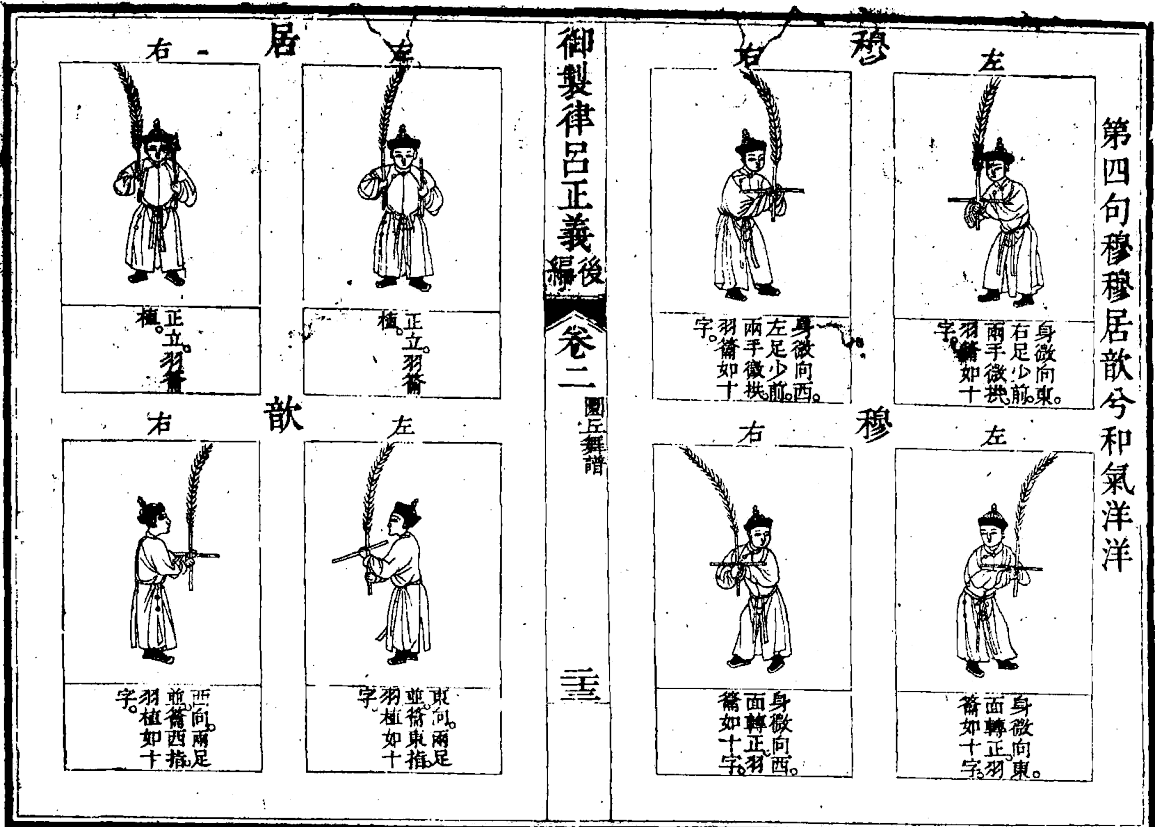 第四句穆穆居歆兮和氣洋洋
穆
左
身微向東。
右足少前。
兩手微拱。
羽籥如十
字。
右
身微向西。
左足少前。
兩手微拱。
羽籥如十
字。
穆
左
身微向東。
面轉正。羽
籥如十字。
右
身微向西。
面轉正。羽
籥如十字。
御製律呂正義後編
卷二
圜丘舞譜
二十三
居
左
正立。羽籥
植。
右
正立。羽籥
植。
歆
左
東向。兩足
並。籥東指。
羽植如十
字。
右
西向。兩足
並。籥西指。
羽植如十
字。